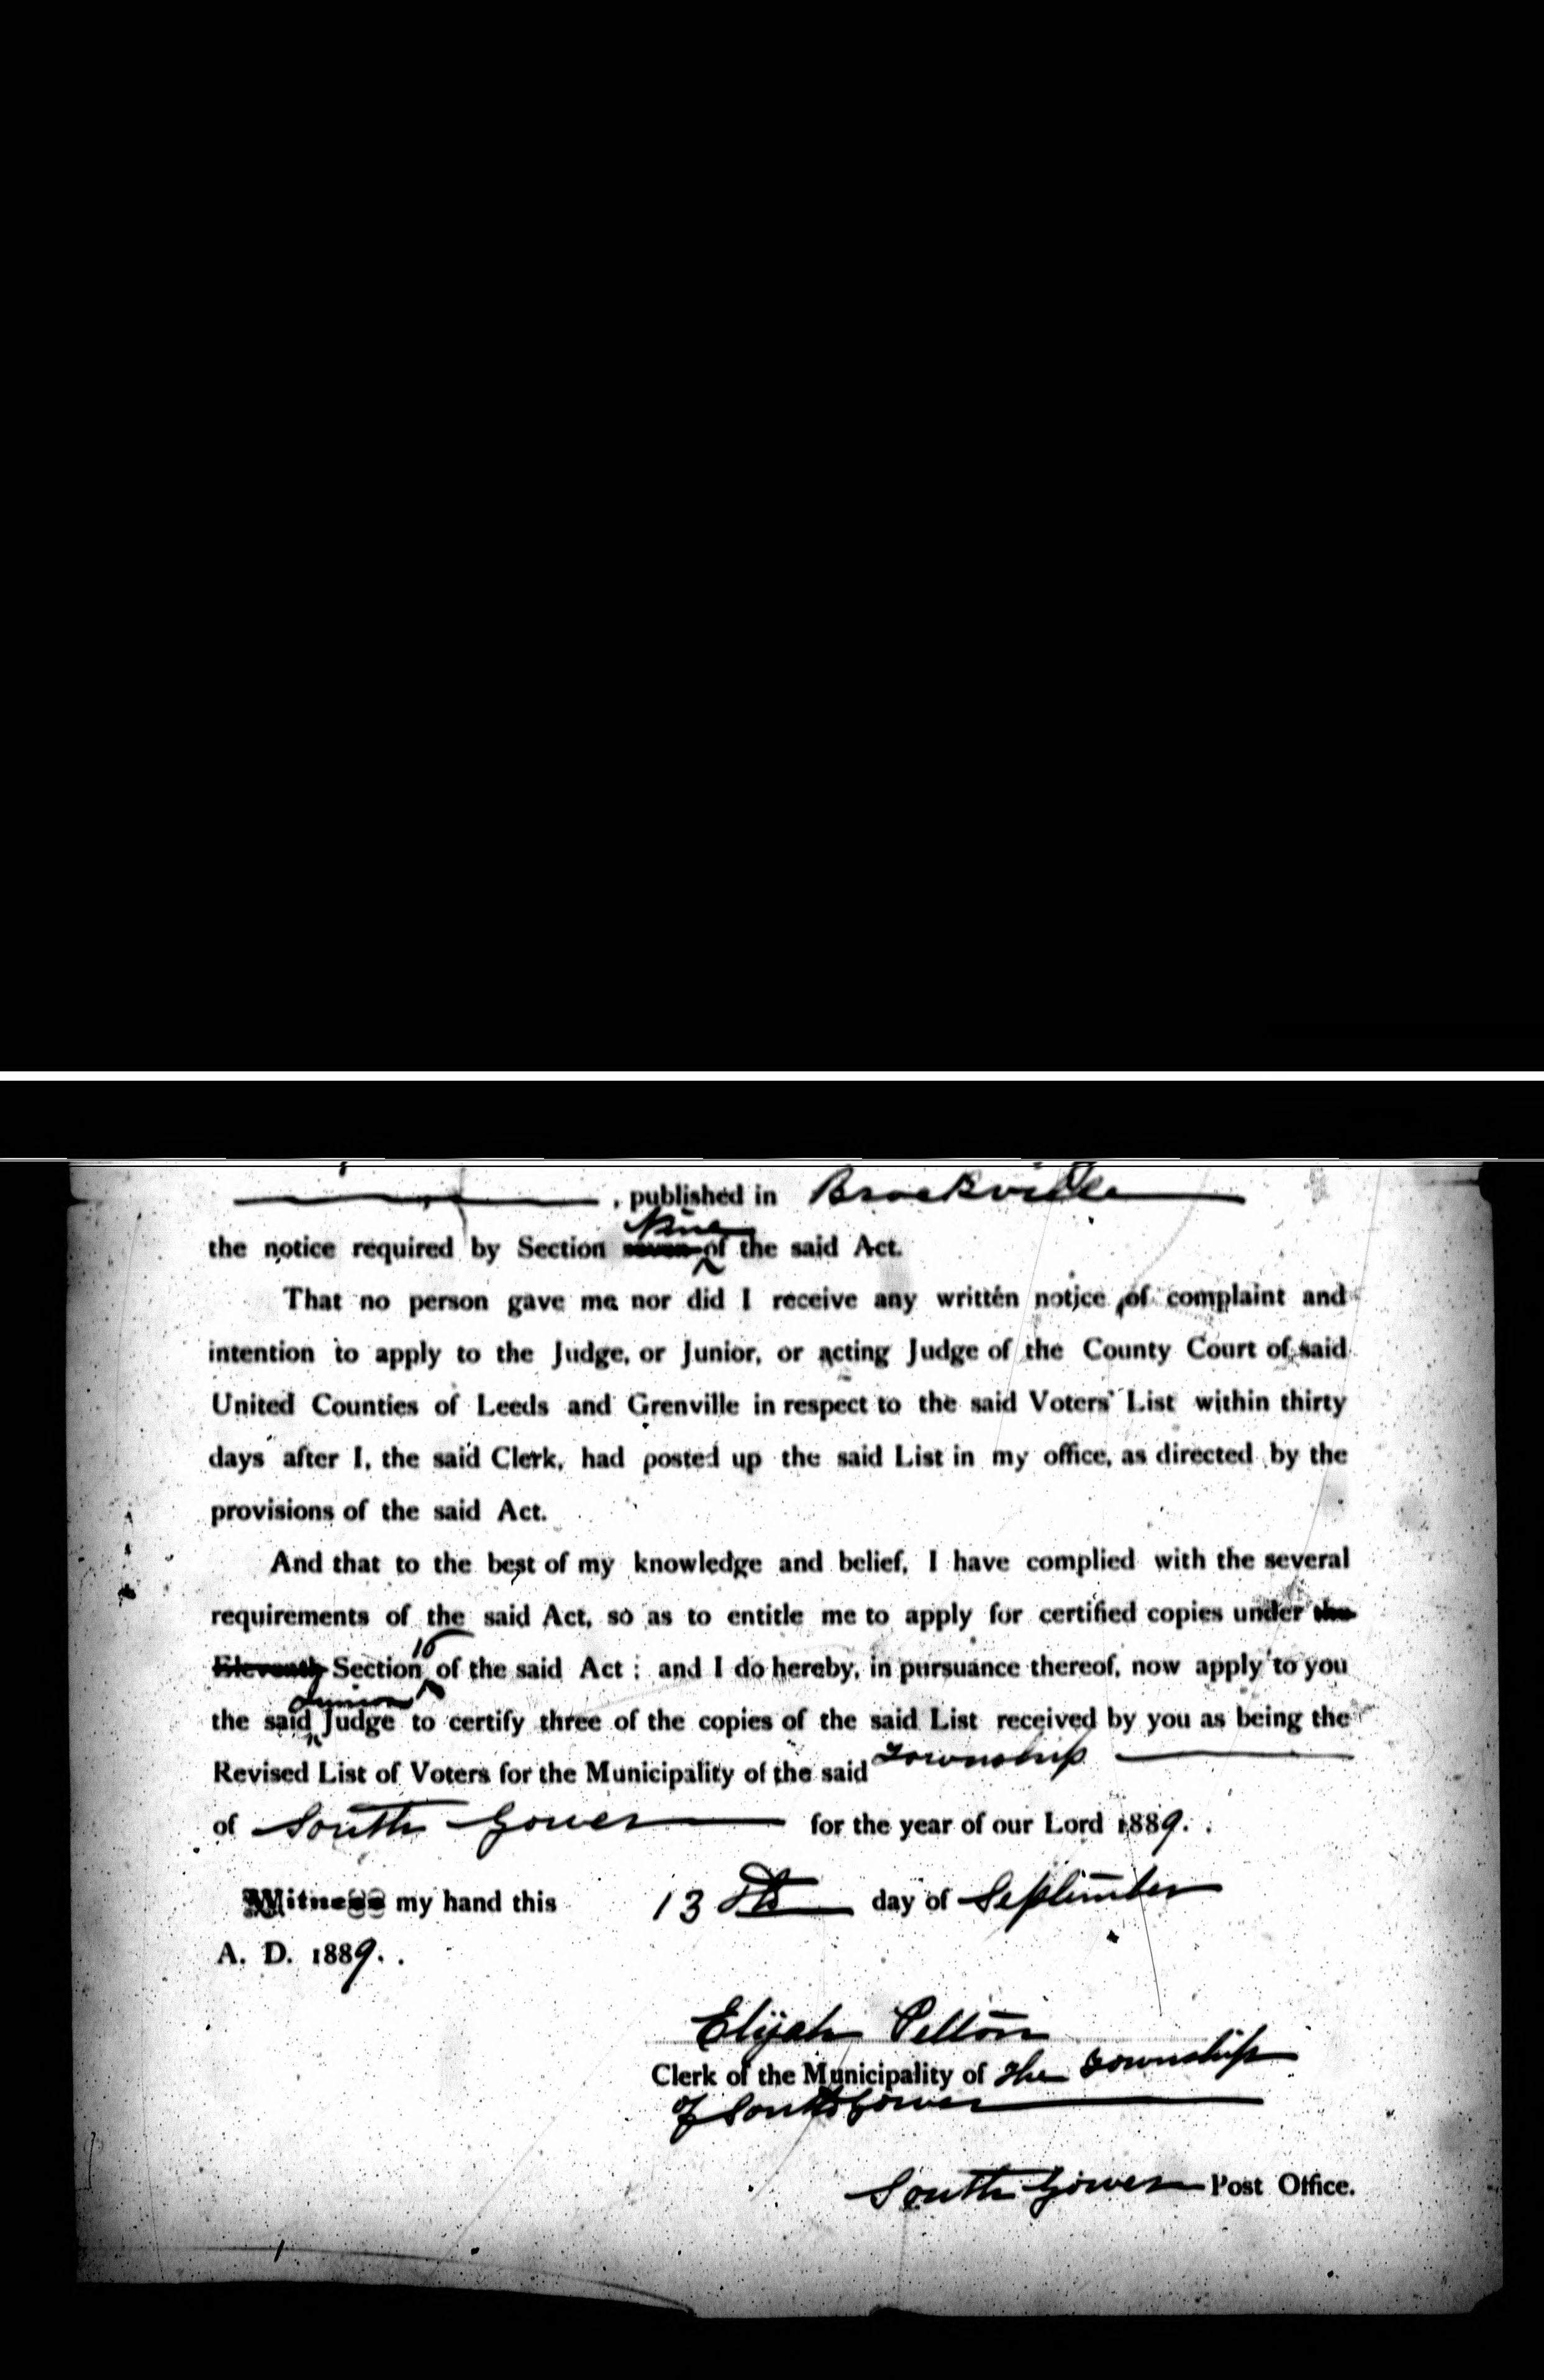 , published in Brockville
Nine
the notice required by Section seven of the said Act.
That no person gave me nor did I receive any written notice of complaint and
intention to apply to the Judge, or Junior, or acting Judge of the County Court of said
United Counties of Leeds and Grenville in respect to the said Voters' List within thirty
days after I, the said Clerk, had posted up the said List in my office, as directed by the
provisions of the said Act.
And that to the best of my knowledge and belief, I have complied with the several
requirements of the said Act, so as to entitle me to apply for certified copies under the
Eleventh Section of the said Act ; and I do hereby, in pursuance thereof, now apply to you
Junior
the said Judge to certify three of the copies of the said List received by you as being the
Revised List of Voters for the Municipality of the said Township
of South Gower for the year of our Lord 1889.
Witness my hand this 13th day of September
A. D. 1889.
Elijah Pelton
Clerk of the Municipality of the Township
of South Gower
South Gower Post Office.